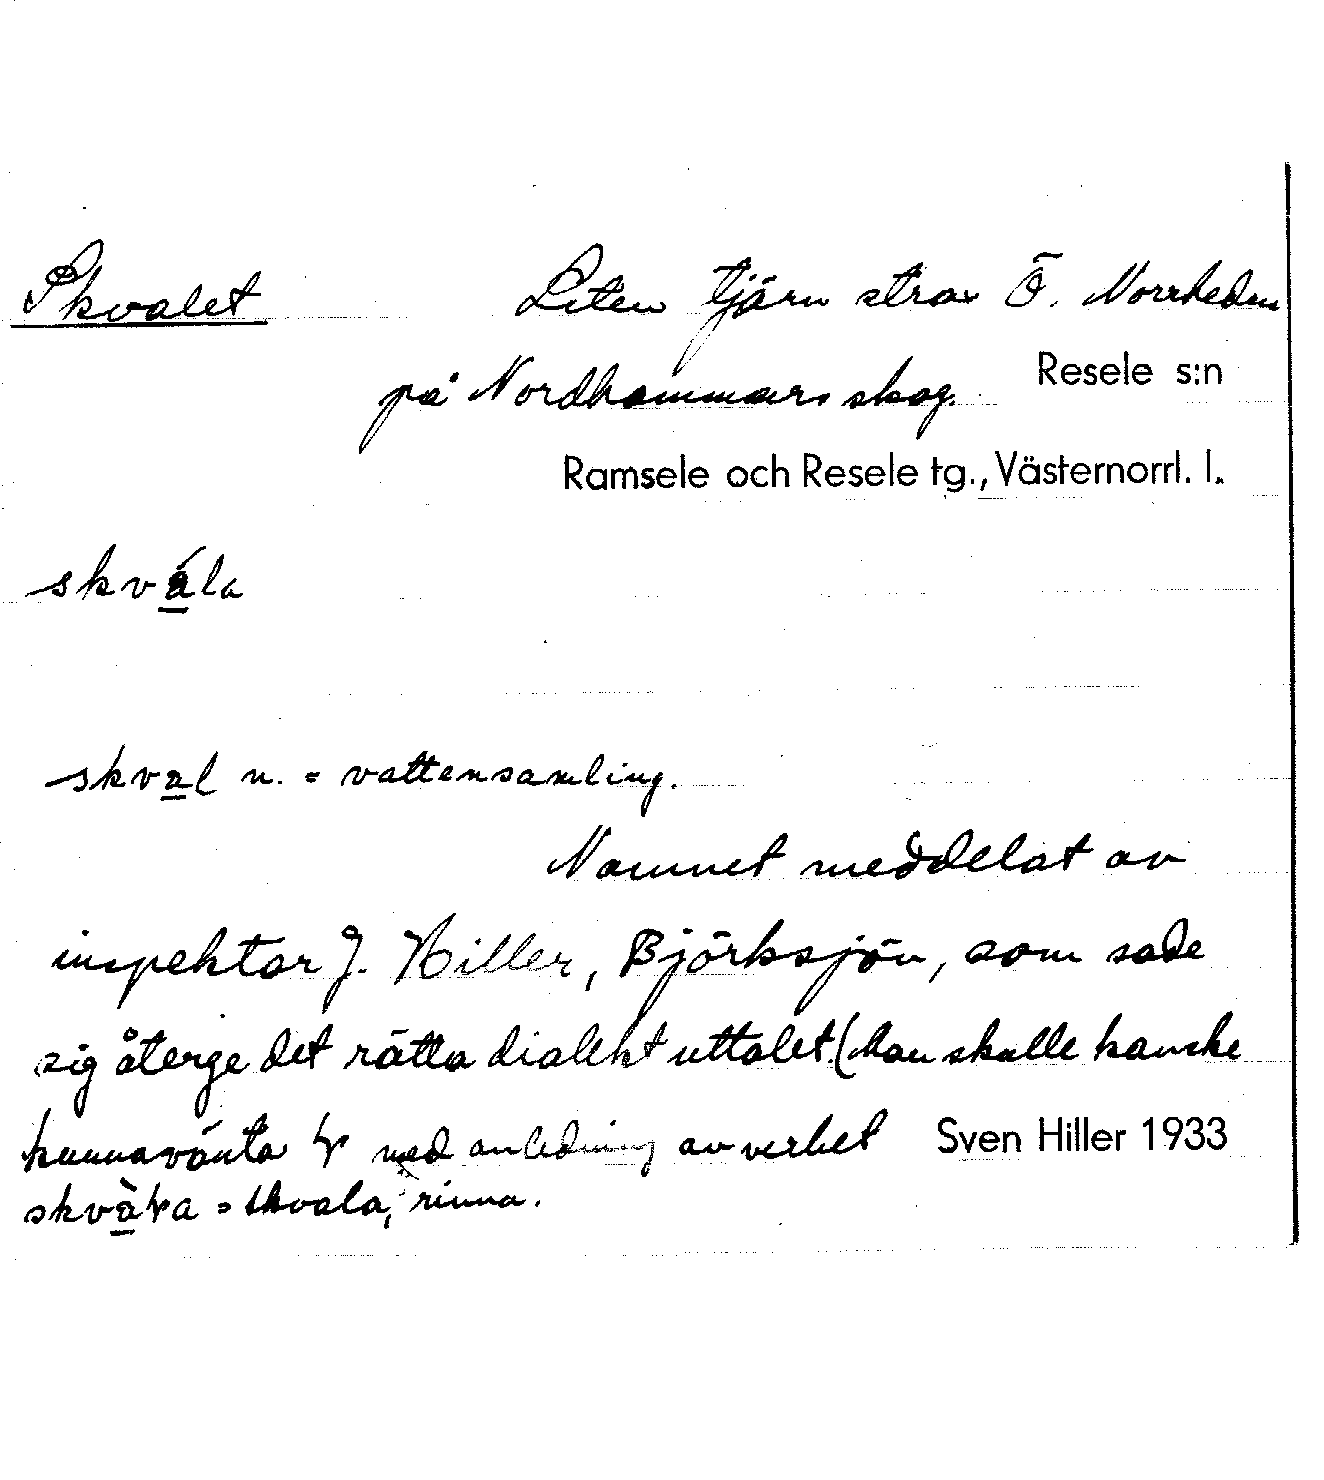 Skvalet Liten tjärn strax Ö. Norrheden
på Nordhammars skog. Resele s:n
Ramsele och Resele tg., Västernorrl. l.
skvála
skval n. = vattensamling.
Namnet meddelat av
inspektor J. Hiller, Björksjön, som sade
sig återge det rätta dialekt uttalet (Man skulle kanske
kunna vänta med anledning av verbet Sven Hiller 1933
= skvala, rinna.